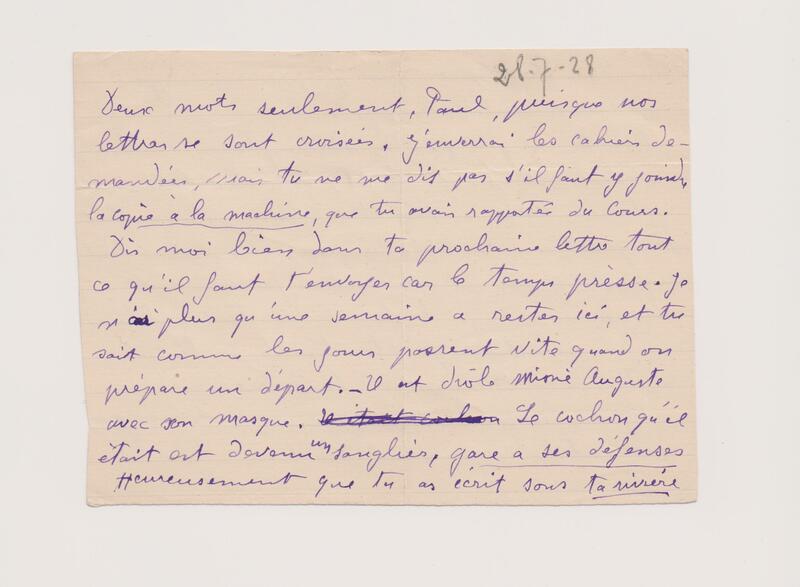 28-7-28
Deux mots seulement, Paul, puisque nos
lettres se sont croisées. J'enverrai les cahiers de-
mandées, mais tu ne me dis pas s'il faut y joindre
la copie à la machine, que tu avais rapportée du Cours.
Dis moi bien dans ta prochaine lettre tout
ce qu'il faut t'envoyer car le temps prèsse. Je
n'ai plus qu'une semaine a rester ici, et tu
sait comme les jours passent vite quand on
prépare un départ. - Il est drôle Auguste
avec son masque. Il était cochon Le cochon qu'il
était est devenu un sanglier, gare a ses défenses
Heureusement que tu as écrit sous ta rivière